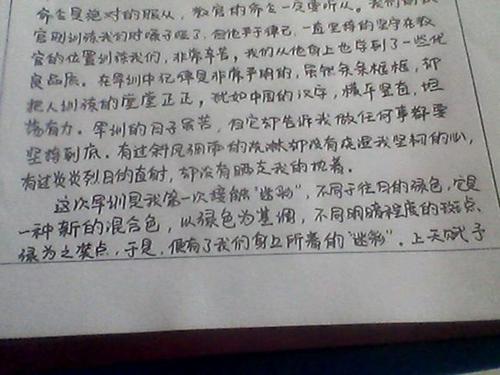 命令是绝对的服从，教官的命令一定要听从。我们的教
官则训练我们对嗓子哑了，但他严于律己，一直坚持的坚守在教
官的位置训练我们，非常辛苦，我们从他身上也学到了一些优
良品质。在军训中纪律是非常严明的，虽然条条框框，却
把人训练的堂堂正正，犹如中国的汉字，横平竖直，坦
荡有力。军训的日子虽苦，但它却告诉我做任何事都要
坚持到底。有过斜风细雨的洗淋却没有浇湿我坚韧的心，
有过炎炎烈日的直射，却没有晒走我的执着。
这次军训是我第一次接触“迷彩”，不同于往日的绿色，它是
一种新的混合色，以绿色为基调，不同明暗程度的斑点、
绿为之装点，于是，便有了我们身上所着的“迷彩”。上天赋予